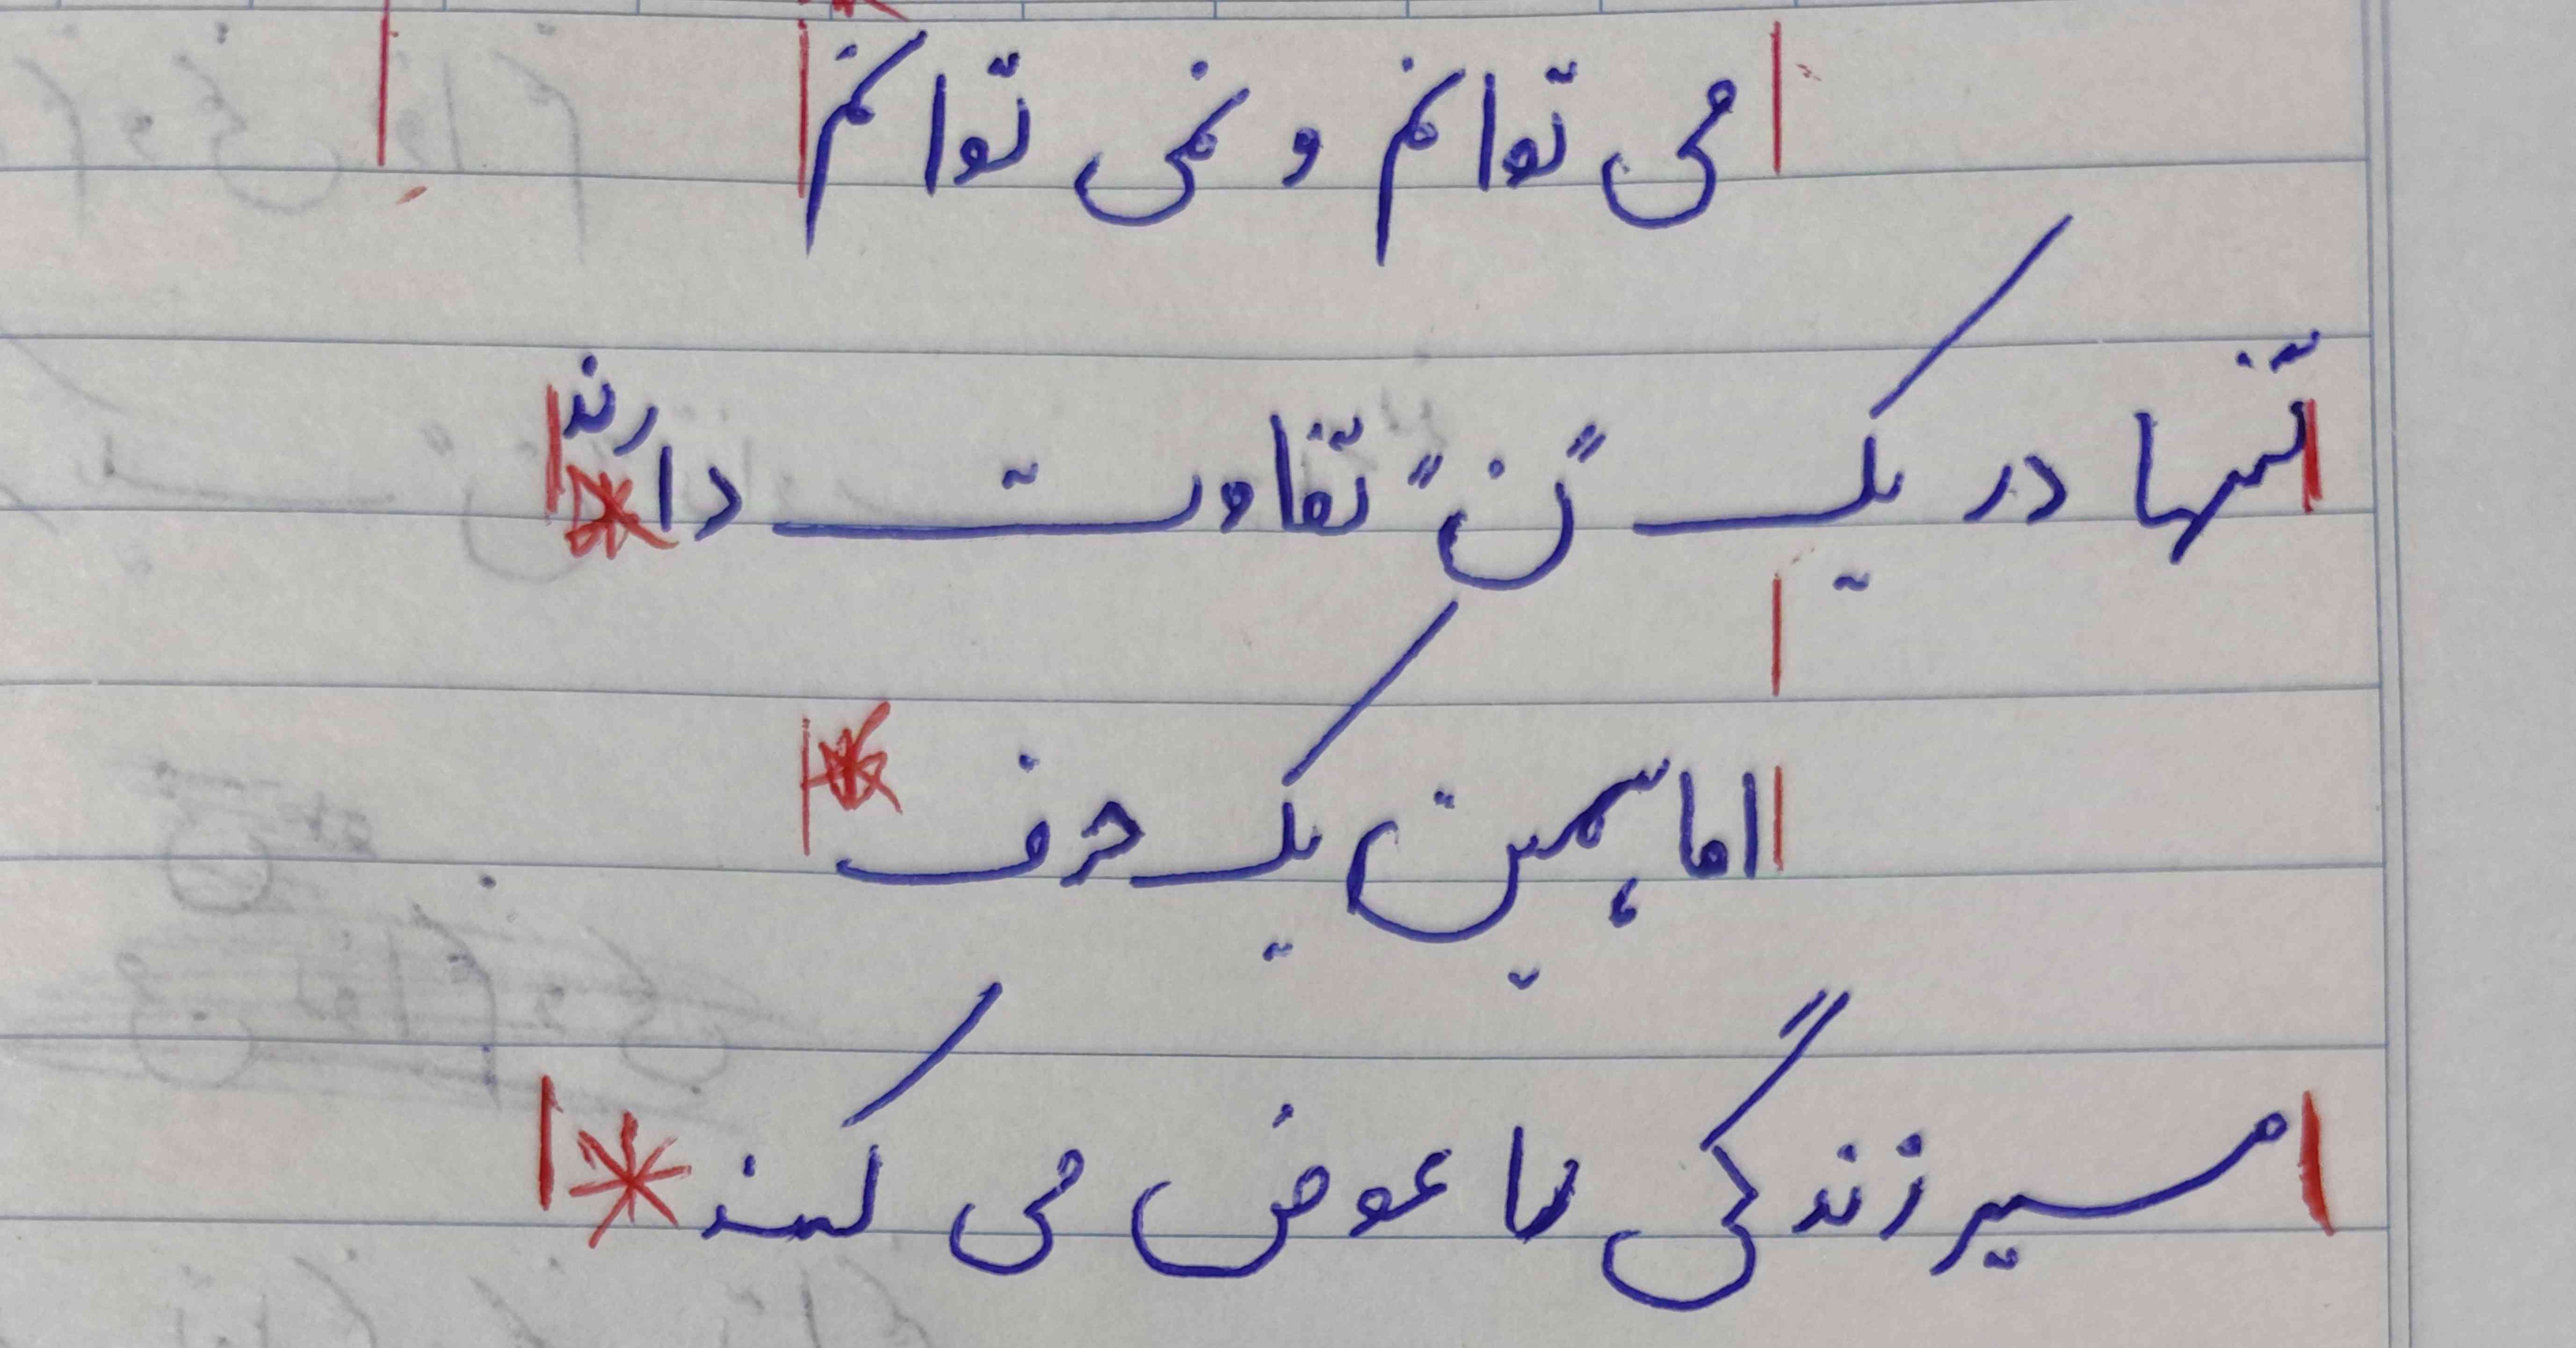 می توانم و نمی توانم
تنها در یک "ن" تفاوت دارند
اما همین یک حرف
مسیر زندگی ما عوض می کند